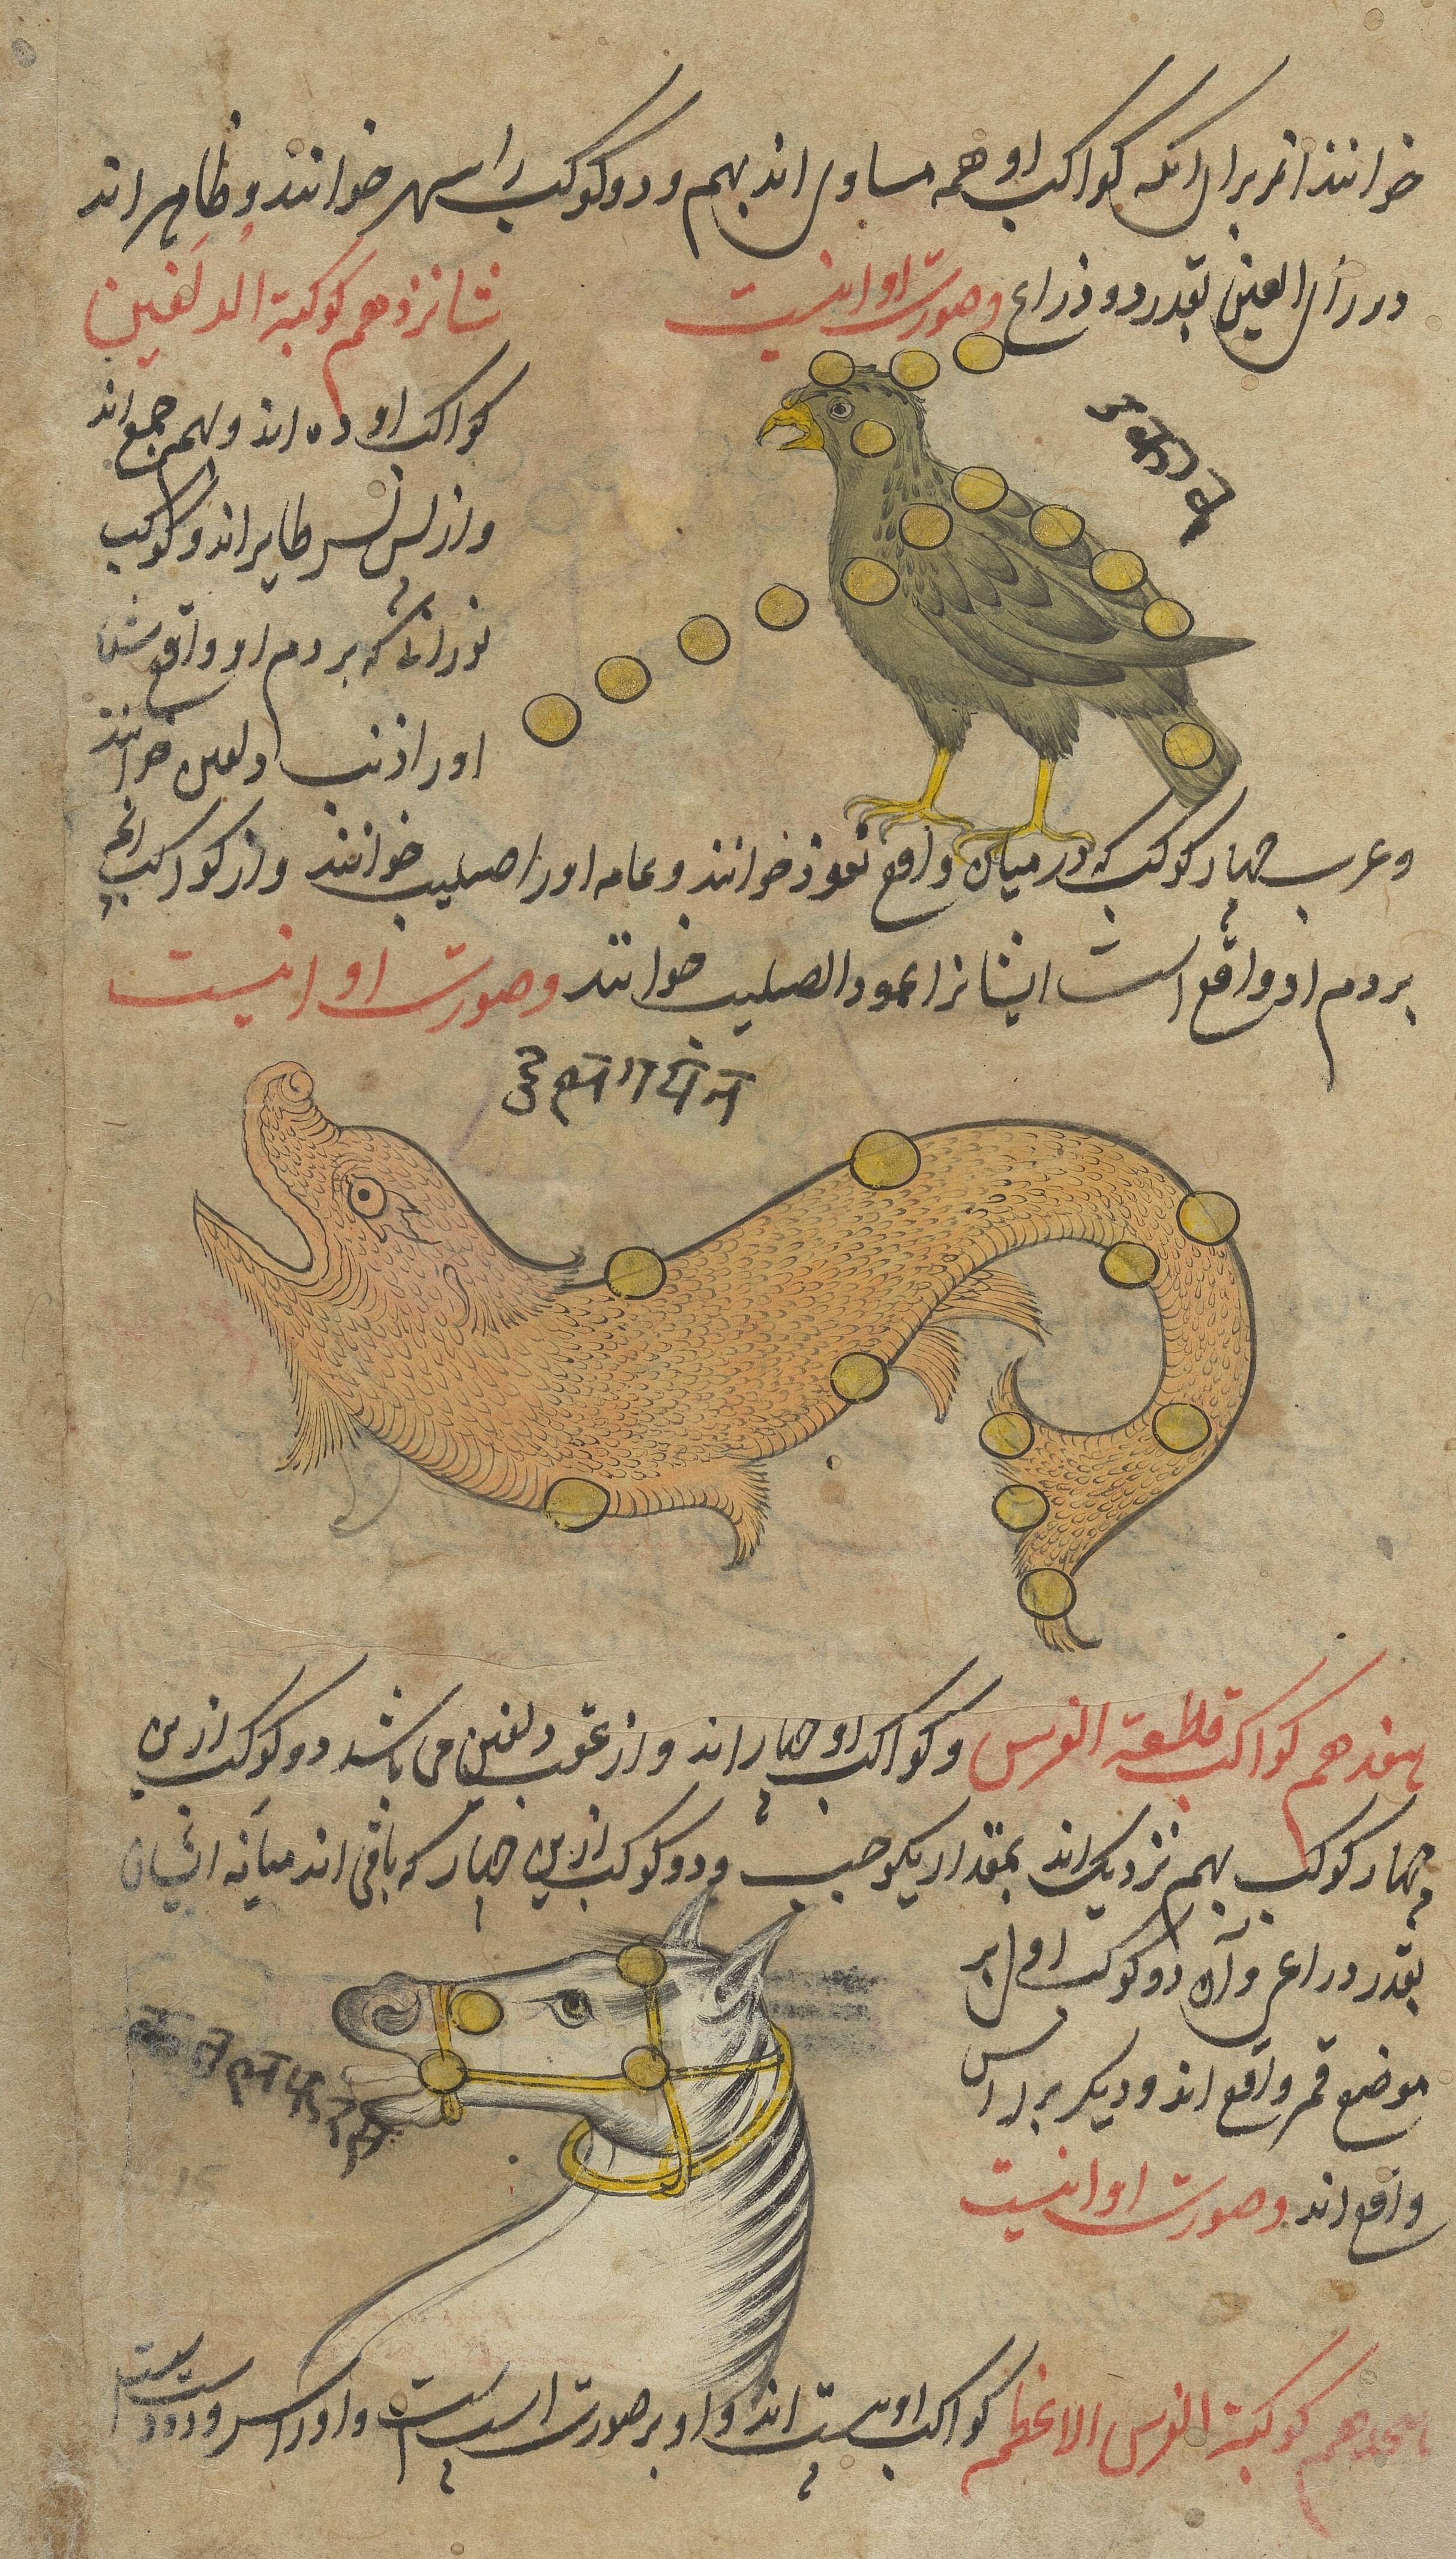 خوانند از برای انکه کواکب او همه مساوی اند بهم و دو کوکب را سهم خوانند و ظاهر اند
در رأی العین بقدر دو ذراع وصورت او اینست
شانزدهم کوکبة الدلفین
کواکب او ده اند و بهم جمع اند
و از پس نسر طایر اند و کوکب
نورانی که بر دم او واقع
او را ذنب دلفین خوانند
وعرب چهار کوکب که در میان واقع خوانند و عامه او را صلیب خوانند و از کواکب انچه
بر دم او واقع است ایشانرا عمود الصلیب خوانند وصورت او اینست
هفدهم کواکب قطعة الفرس و کواکب او چهار اند و از عقب دلفین می باشد دو کوکب ازین
چهار کوکب بهم نزدیک اند بمقدار یکوجب و دو کوکب ازین چهار که باقی اند میانه ایشان
بقدر دراعی و آن دو کوکب اول بر
موضع قمر واقع اند و دیکر بر راس
واقع اند وصورت او اینست
هجدهم کوکبة الفرس الاعظم کواکب او بیست اند و او بر صورت اسپ است و او را سر و دو دست